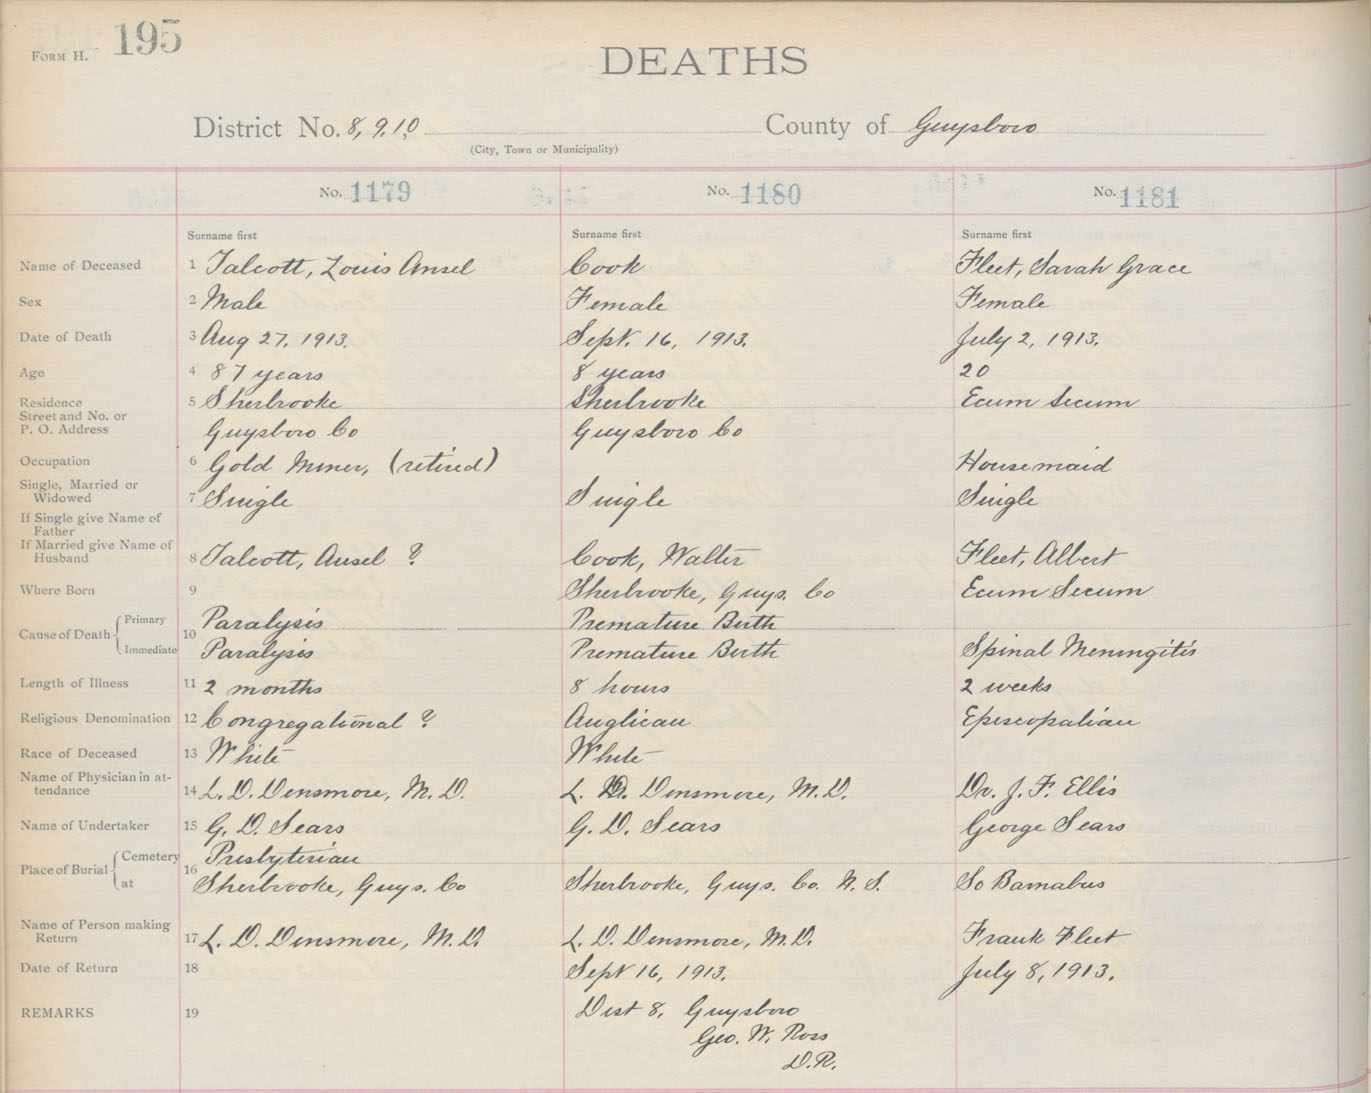 FORM H. 195
DEATHS
District No. 8, 9, 10 County of Guysboro
(City, Town or Municipality)
No. 1179 No. 1180 No. 1181
Surname first Surname first Surname first
Name of Deceased 1 Talcott, Louis Ansel Cook Fleet, Sarah Grace
Sex 2 Male Female Female
Date of Death 3 Aug 27, 1913. Sept. 16, 1913. July 2, 1913.
Age 4 87 years 8 years 20
Residence 5 Sherbrooke Sherbrooke Ecum Secum
Street and No. or
P. O. Address Guysboro Co Guysboro Co
Occupation 6 Gold Miner, (retired) Housemaid
Single, Married or
Widowed 7 Single Single Single
If Single give Name of
Father
If Married give Name of
Husband 8 Talcott, Ansel ? Cook, Walter Fleet, Albert
Where Born 9 Sherbrooke, Guys. Co Ecum Secum
Cause of Death Primary 10 Paralysis Premature Birth
Immediate Paralysis Premature Birth Spinal Meningitis
Length of Illness 11 2 months 8 hours 2 weeks
Religious Denomination 12 Congregational ? Anglican Episcopalian
Race of Deceased 13 White White
Name of Physician in at-
tendance 14 L. D. Densmore, M. D. L. D. Densmore, M. D. Dr. J. F. Ellis
Name of Undertaker 15 G. D. Sears G. D. Sears George Sears
Place of Burial Cemetery 16 Presbyterian
at Sherbrooke, Guys. Co Sherbrooke, Guys. Co. N. S. So Barnabus
Name of Person making
Return 17 L. D. Densmore, M. D. L. D. Densmore, M. D. Frank Fleet
Date of Return 18 Sept 16, 1913. July 8, 1913.
REMARKS 19 Dist 8, Guysboro
Geo. W. Ross
D.R.